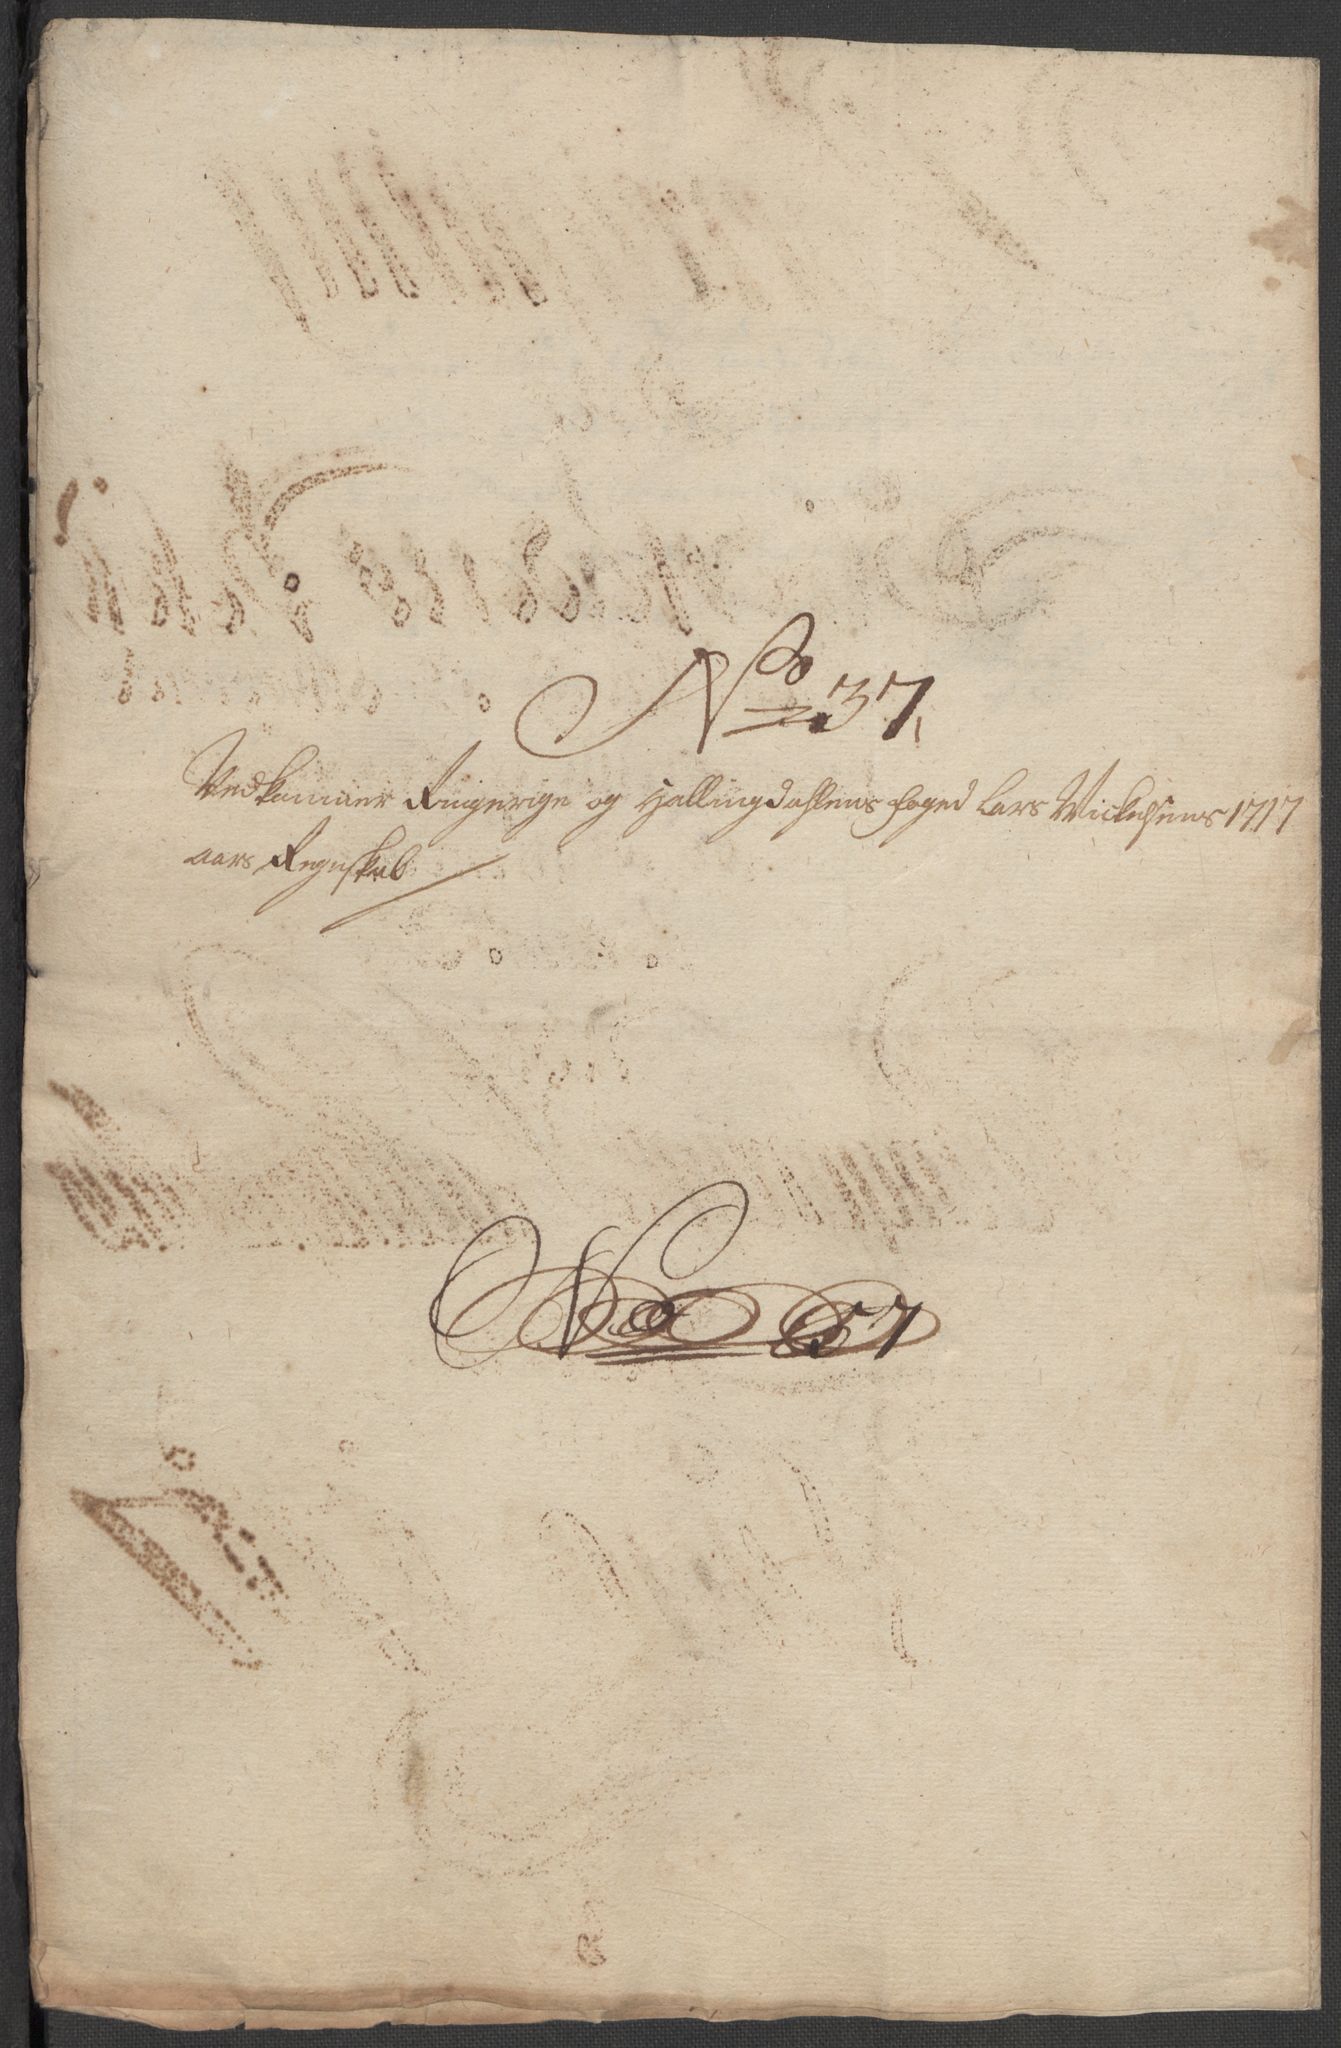 No 37
Vedkommer Ringerige og Hallingdahlens foged Lars Wickesens 1717
aars Regnskab
No 57